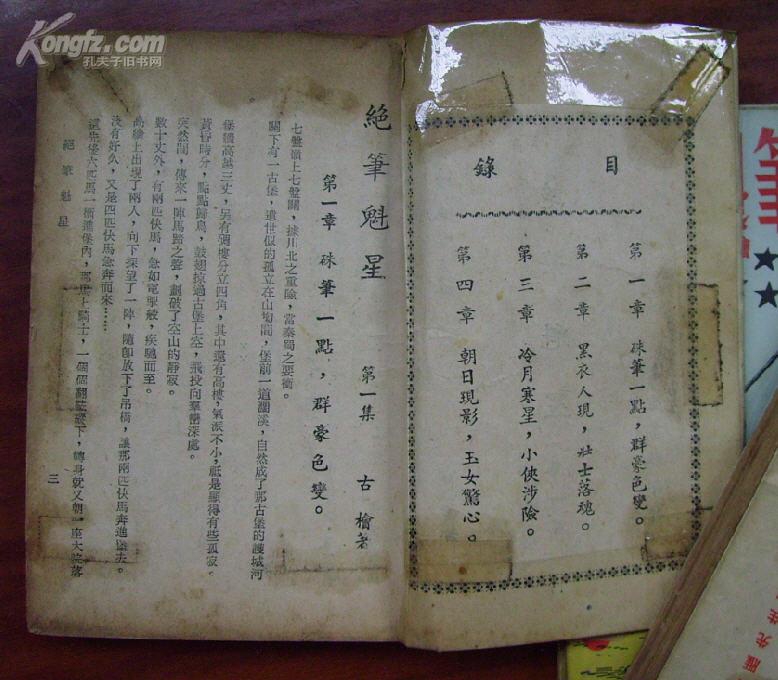 Kongfz.com
孔夫子旧书网
目錄
第一章 硃筆一點，群豪色變。
第二章 黑衣人現，壯士落魂。
第三章 冷月寒星，小俠涉險。
第四章 朝日現影，玉女驚心。
絕筆魁星 第一集 古檜著
第一章 硃筆一點，群豪色變。
七盤嶺上七盤關，據川北之重險，當秦蜀之要衝。
關下有一古堡，遺世似的孤立在山坳間，堡前一道澗溪，自然成了那古堡的護城河
堡牆高越三丈，另有碉樓分立四角，其中還有高樓，氣派不小，祇是顯得有些孤寂。
黃昏時分，點點歸鳥，鼓翅掠過古堡上空，飛投向羣巒深處。
突然間，傳來一陣馬蹄之聲，劃破了空山的靜寂。
數十丈外，有兩匹快馬，急如電掣般，疾馳而至。
高牆上出現了兩人，向下探望了一陣，隨卽放下了吊橋，讓那兩匹快馬奔進堡去。
沒有好久，又是四匹快馬急奔而來……
這先後六匹馬一衝進堡內，那馬上騎士，一個個翻鞍縱下，轉身就又朝一座大院落
絕筆魁星
三
筆